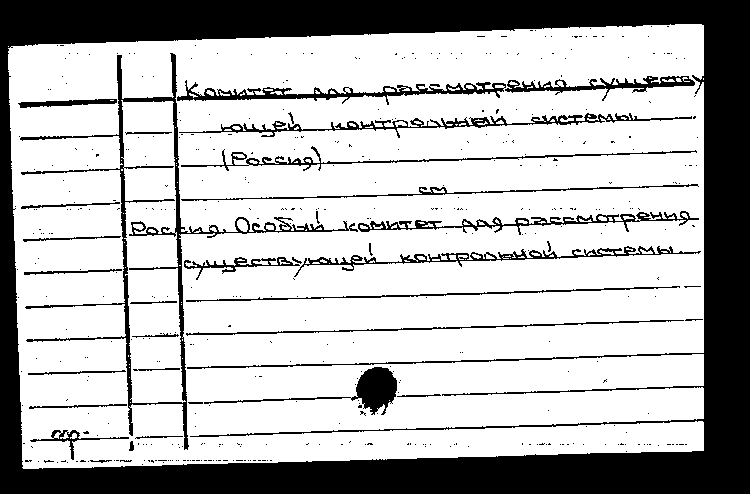 Комитет для рассмотрения существу
ющей контрольный системы.
(Россия)
см
Россия. Особый комитет для рассмотрения
существующей контрольной системы.